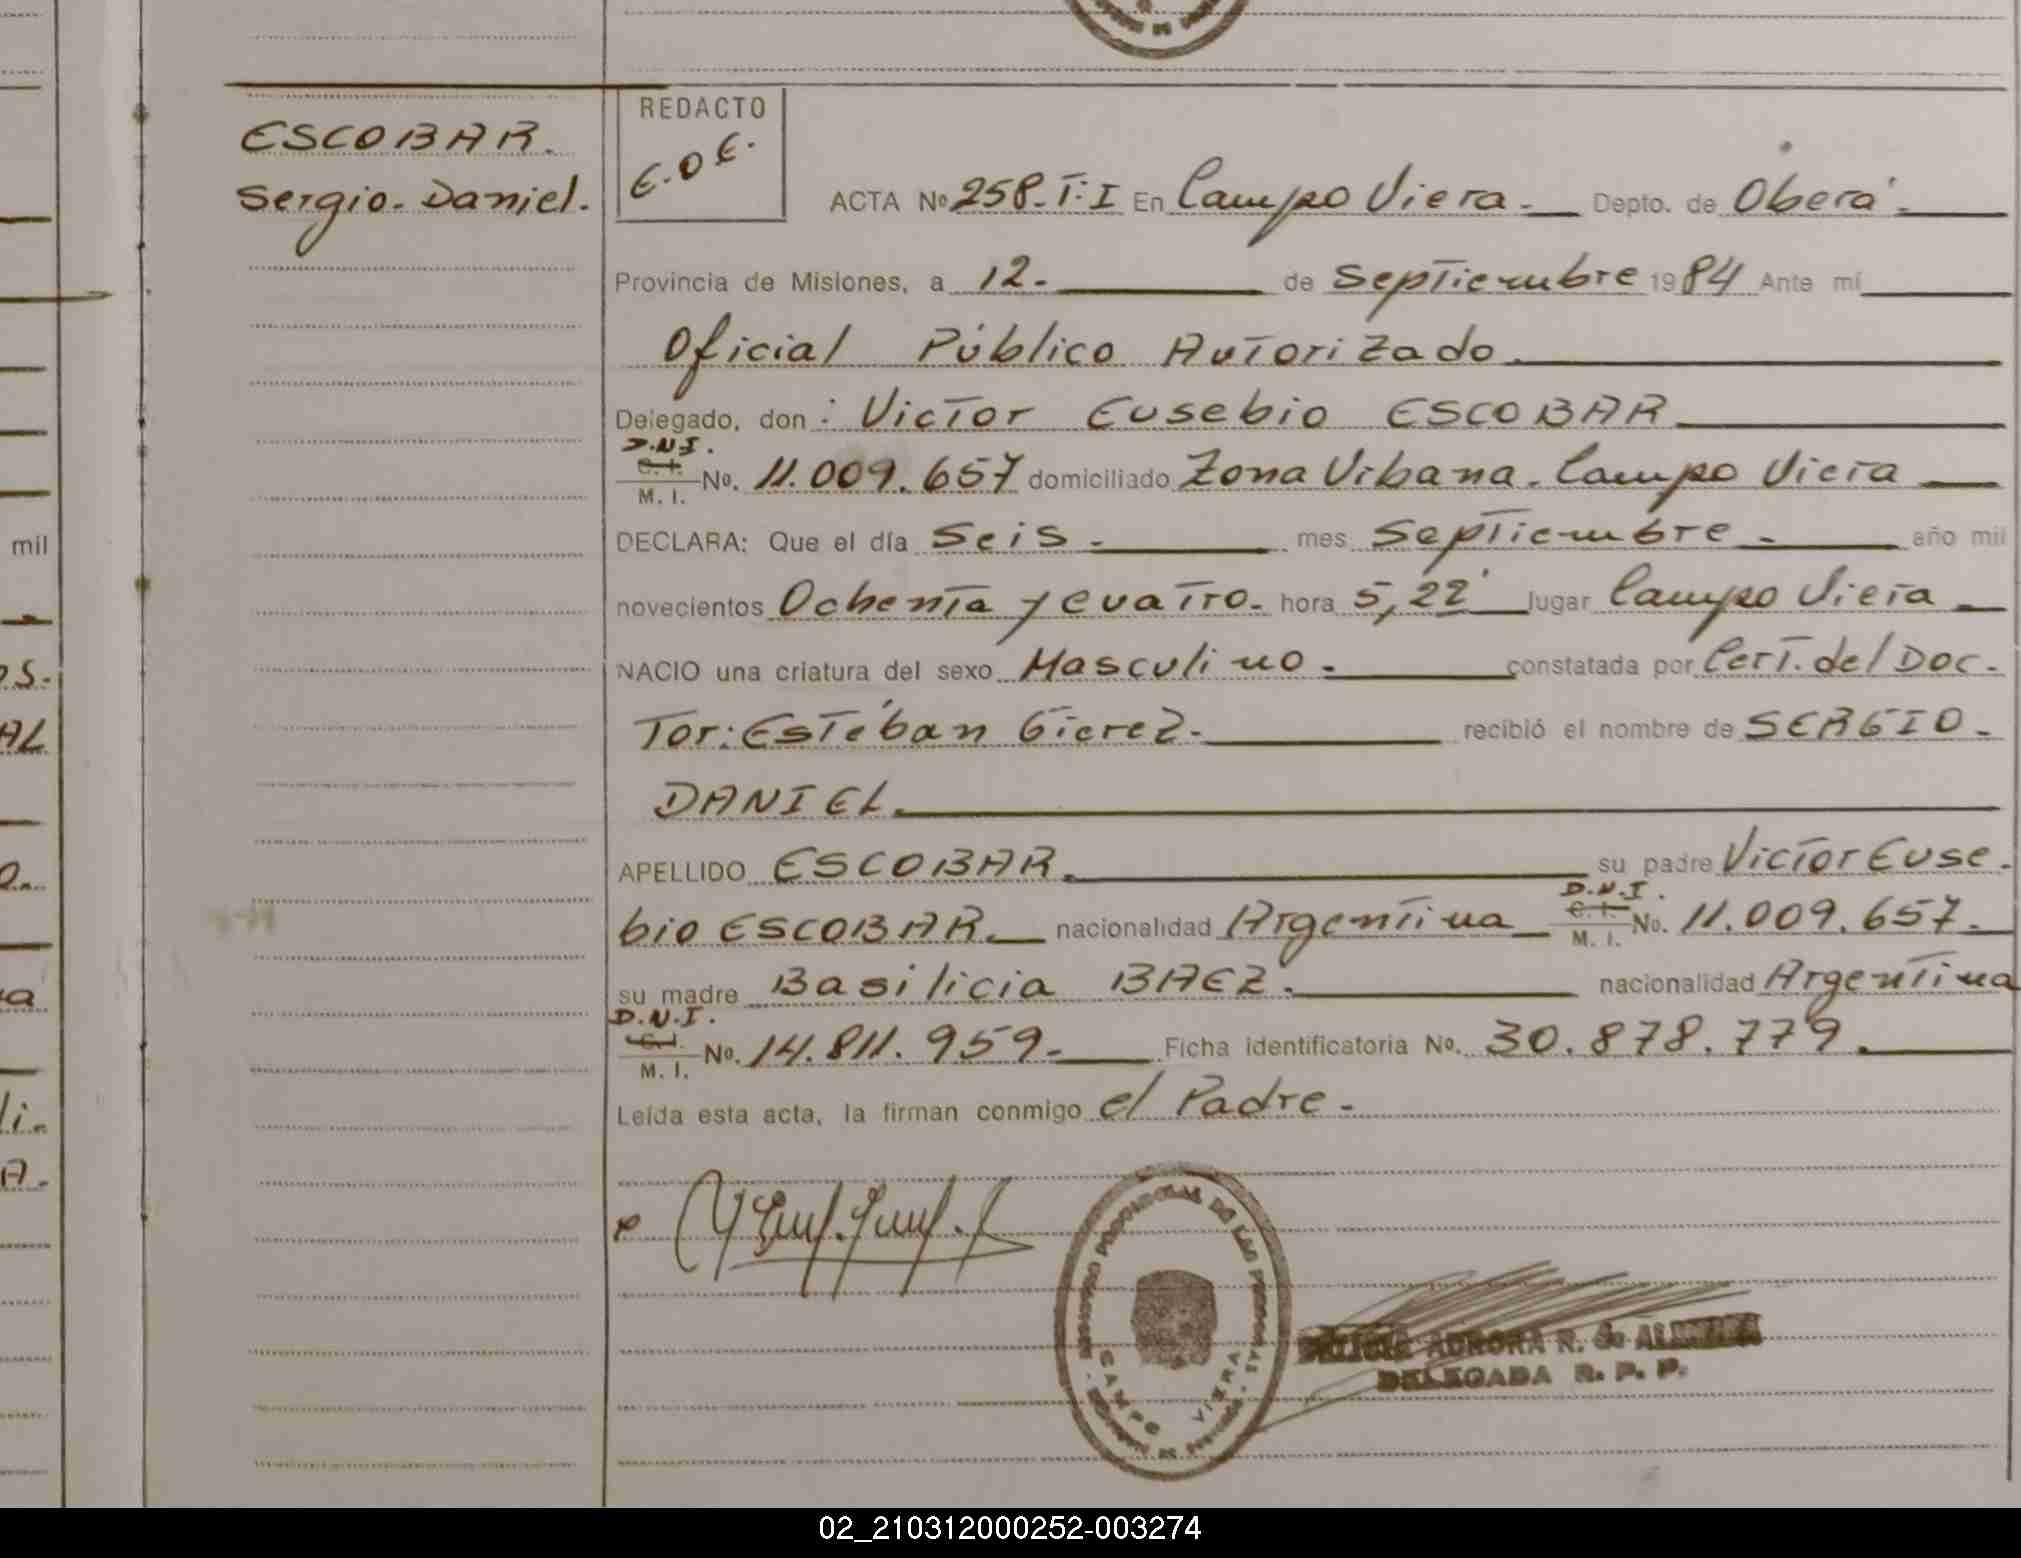 REDACTO
E.O.E.
ESCOBAR.
Sergio-Daniel.
ACTA Nº 258-T.I En Campo Viera.- Depto. de Oberá.-
Provincia de Misiones, a 12.- de Septiembre 1984 Ante mí
Oficial Público Autorizado.
Delegado, don: Victor Eusebio ESCOBAR
D.N.I.
C. I.
M. I. No. 11.009.657 domiciliado Zona Urbana. Campo Viera
DECLARA: Que el día Seis.- mes Septiembre.- año mil
novecientos Ochenta y cuatro.- hora 5,22' lugar Campo Viera
NACIO una criatura del sexo Masculino.- constatada por Cert. del Doc-
tor: Estéban Gierez.- recibió el nombre de SERGIO-
DANIEL.
APELLIDO ESCOBAR. su padre Victor Euse-
bio ESCOBAR. nacionalidad Argentina D.N.I. C. I. M. I. No. 11.009.657.-
su madre Basilicia BAEZ.- nacionalidad Argentina
D.N.I.
C. I.
M. I. No. 14.811.959.- Ficha identificatoria No. 30.878.779.
Leída esta acta, la firman conmigo el Padre.-
CAMPO VIERA
AURORA R. de
DELEGADA R. P. P.
mil
02_210312000252-003274